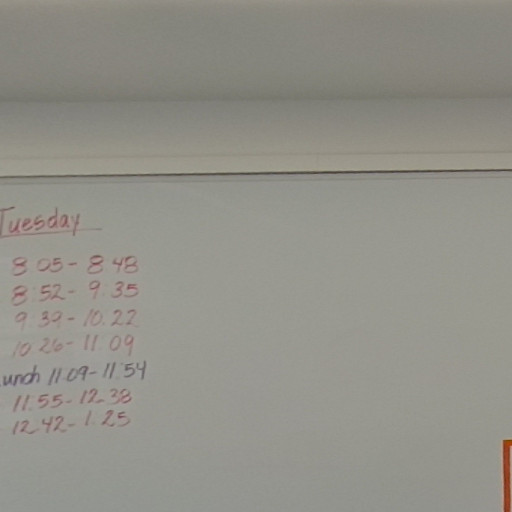 Tuesday
8:05 - 8:48
8:52 - 9:35
9:39 - 10:22
10:26 - 11:09
unch 11:09 - 11:54
11:55 - 12:38
12:42 - 1:25